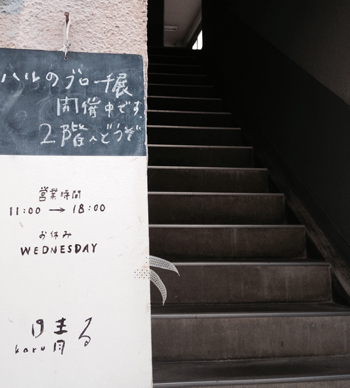 ハルのブローチ展
開催中です。
2階へどうぞ
営業時間
11:00 → 18:00
お休み
WEDNESDAY
晴る
haru